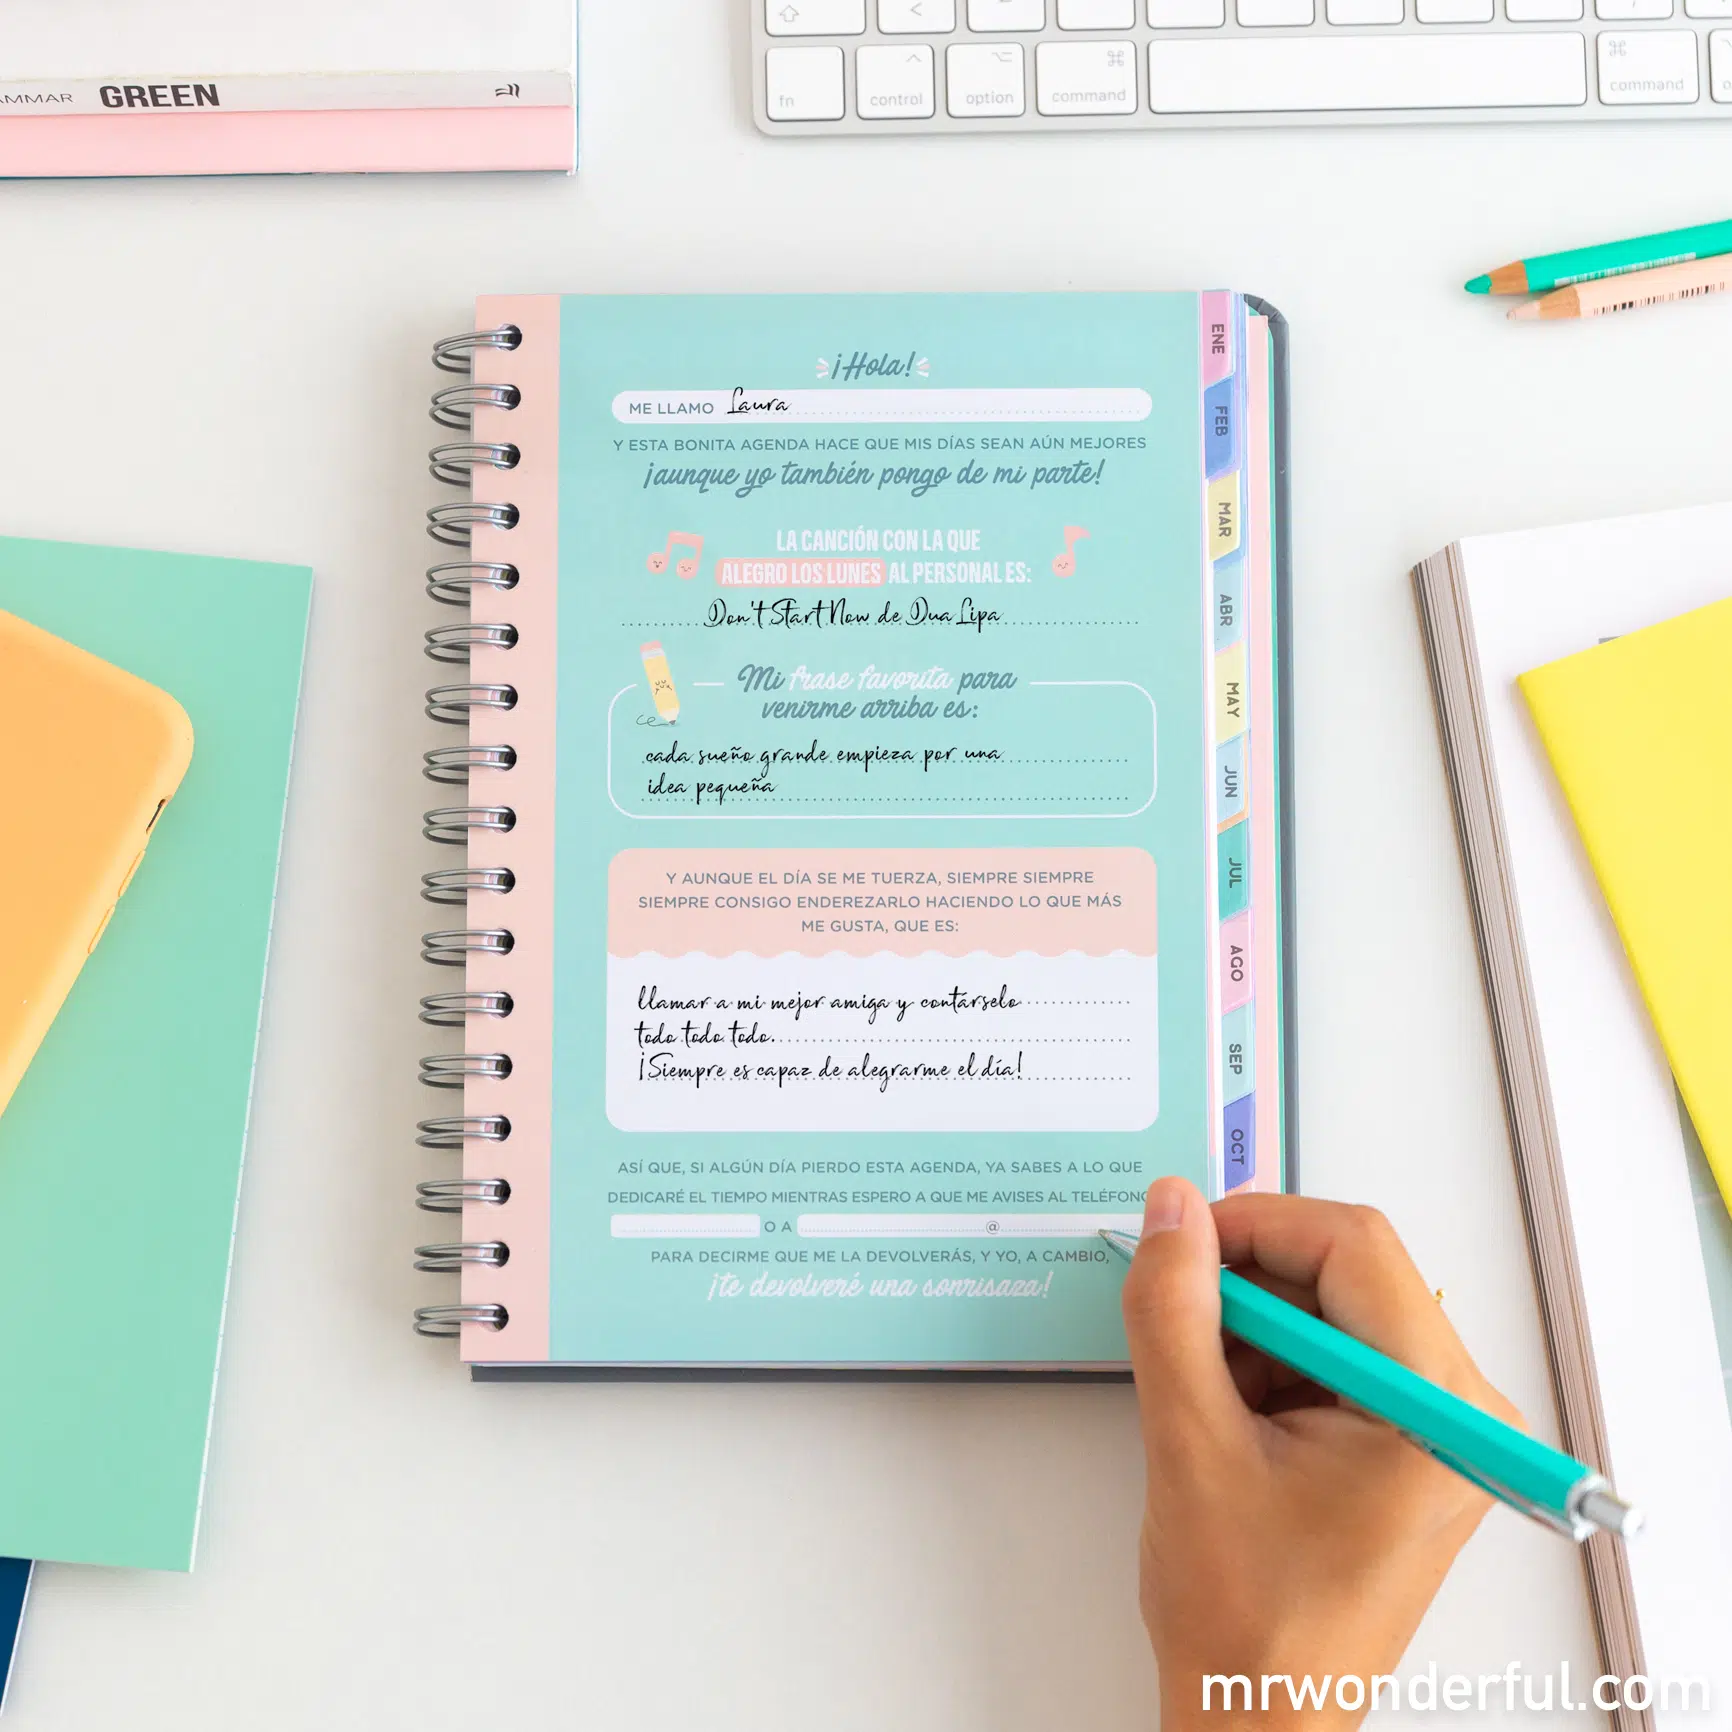 AMMAR GREEN
fn control option command command
¡Hola!
ME LLAMO Laura
Y ESTA BONITA AGENDA HACE QUE MIS DÍAS SEAN AÚN MEJORES
¡aunque yo también pongo de mi parte!
LA CANCIÓN CON LA QUE
ALEGRO LOS LUNES AL PERSONAL ES:
Don't Start Now de Dua Lipa
Mi frase favorita para
venirme arriba es:
cada sueño grande empieza por una
idea pequeña
Y AUNQUE EL DÍA SE ME TUERZA, SIEMPRE SIEMPRE
SIEMPRE CONSIGO ENDEREZARLO HACIENDO LO QUE MÁS
ME GUSTA, QUE ES:
llamar a mi mejor amiga y contárselo
todo todo todo.
¡Siempre es capaz de alegrarme el día!
ASÍ QUE, SI ALGÚN DÍA PIERDO ESTA AGENDA, YA SABES A LO QUE
DEDICARÉ EL TIEMPO MIENTRAS ESPERO A QUE ME AVISES AL TELÉFONO
O A @
PARA DECIRME QUE ME LA DEVOLVERÁS, Y YO, A CAMBIO,
¡te devolveré una sonrisaza!
ENE
FEB
MAR
ABR
MAY
JUN
JUL
AGO
SEP
OCT
mrwonderful.com